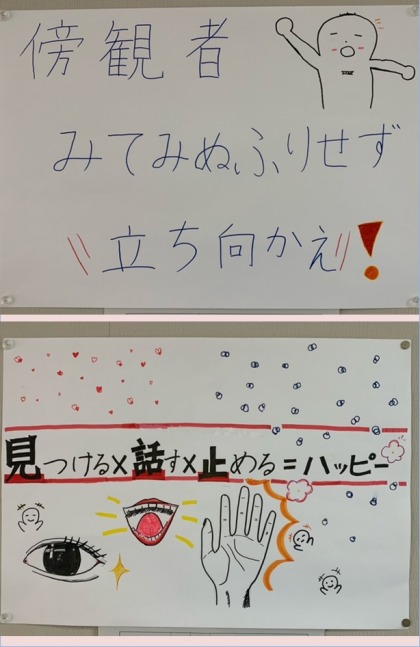 傍観者
みてみぬふりせず
立ち向かえ!
見つける×話す×止める=ハッピー